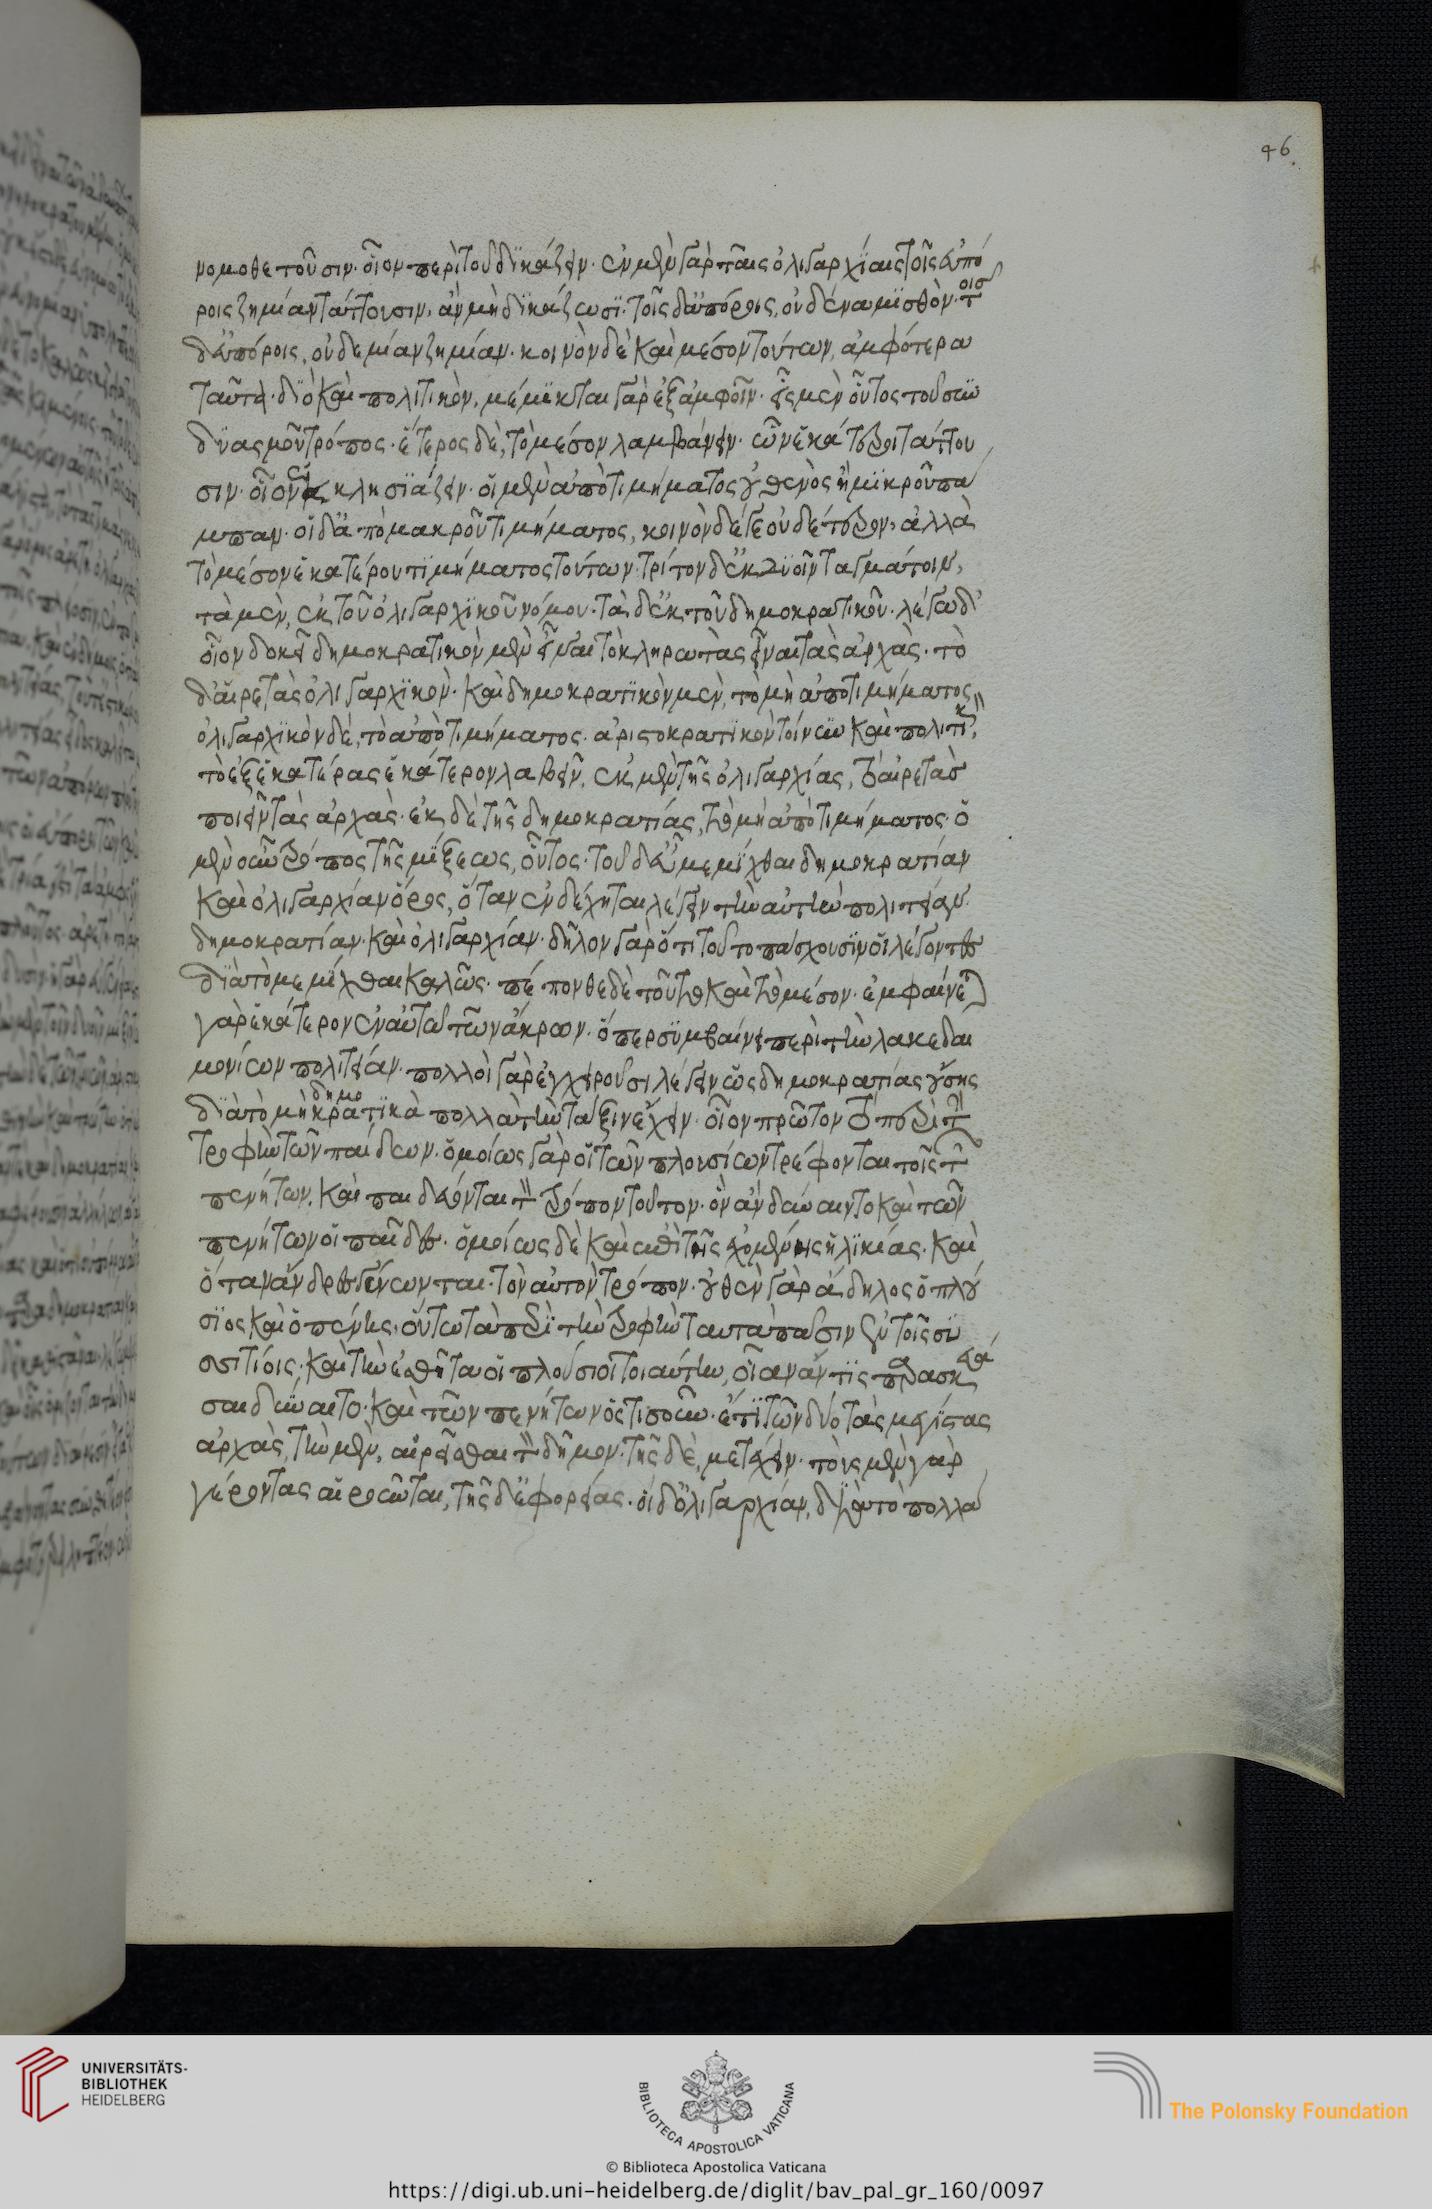 46.
νομοθετοῦσιν· οἷον περὶ τοῦ δικάζειν· ἐν μὲν γὰρ ταῖς ὀλιγαρχίαις τοῖς εὐπό
ροις ζημίαν τάττουσιν, ἂν μὴ δικάζωσι· τοῖς δ' ἀπόροις, οὐδένα μισθὸν· τοῖς
δ' εὐπόροις, οὐδεμίαν ζημίαν· κοινὸν δὲ καὶ μέσον τούτων, ἀμφότερα
ταῦτα· διὸ καὶ πολιτικὸν, μέμικται γὰρ ἐξ ἀμφοῖν· εἷς μὲν οὗτος τοῦ συν
δυασμοῦ τρόπος· ἕτερος δὲ, τὸ μέσον λαμβάνειν· ὧν ἑκάτεροι τάττου
σιν· οἷον ἐκκλησιάζειν· οἱ μὲν ἀπὸ τιμήματος οὐθενὸς ἢ μικροῦ πά
μπαν· οἱ δ' ἀπὸ μακροῦ τιμήματος, κοινὸν δέ γε οὐδέτερον, ἀλλὰ
τὸ μέσον ἑκατέρου τιμήματος τούτων· τρίτον δ' ἐκ δυοῖν ταγμάτοιν,
τὰ μὲν, ἐκ τοῦ ὀλιγαρχικοῦ νόμου· τὰ δ' ἐκ τοῦ δημοκρατικοῦ· λέγω δ'
οἷον δοκεῖ δημοκρατικὸν μὲν εἶναι τὸ κληρωτὰς εἶναι τὰς ἀρχὰς· τὸ
δ' αἱρετὰς ὀλιγαρχικὸν· καὶ δημοκρατικὸν μὲν, τὸ μὴ ἀπὸ τιμήματος
ὀλιγαρχικὸν δὲ, τὸ ἀπὸ τιμήματος· ἀριστοκρατικὸν τοίνυν καὶ πολιτικὸν,
τὸ ἐξ ἑκατέρας ἑκάτερον λαβεῖν, ἐκ μὲν τῆς ὀλιγαρχίας, τὸ αἱρετὰς
ποιεῖν τὰς ἀρχὰς· ἐκ δὲ τῆς δημοκρατίας, τὸ μὴ ἀπὸ τιμήματος· ὁ
μὲν οὖν τρόπος τῆς μίξεως, οὗτος· τοῦ δ' εὖ μεμίχθαι δημοκρατίαν
καὶ ὀλιγαρχίαν ὅρος, ὅταν ἐνδέχηται λέγειν τὴν αὐτὴν πολιτείαν·
δημοκρατίαν· καὶ ὀλιγαρχίαν· δῆλον γὰρ ὅτι τοῦτο πάσχουσιν οἱ λέγοντες
διὰ τὸ μεμίχθαι καλῶς· πέπονθε δὲ τοῦτο καὶ τὸ μέσον· ἐμφαίνεται
γὰρ ἑκάτερον ἐν αὐτῷ τῶν ἄκρων· ὅπερ συμβαίνει περὶ τὴν λακεδαι
μονίων πολιτείαν· πολλοὶ γὰρ ἐγχειροῦσι λέγειν ὡς δημοκρατίας οὔσης
διὰ τὸ δημοκρατικὰ πολλὰ τὴν τάξιν ἔχειν· οἷον πρῶτον τὸ περὶ τὴν
τροφὴν τῶν παίδων· ὁμοίως γὰρ οἱ τῶν πλουσίων τρέφονται τοῖς τῶν
πενήτων· καὶ παιδεύονται τὸν τρόπον τοῦτον· ὃν ἂν δύναιντο καὶ τῶν
πενήτων οἱ παῖδες· ὁμοίως δὲ καὶ ἐπὶ τῆς ἐχομένης ἡλικίας· καὶ
ὅταν ἄνδρες γένωνται· τὸν αὐτὸν τρόπον· οὐθὲν γὰρ ἄδηλος ὁ πλού
σιος καὶ ὁ πένης, οὕτω τὰ περὶ τὴν τροφὴν ταυτὰ πᾶσιν ἐν τοῖς συ
σσιτίοις· καὶ τὴν ἐσθῆτα οἱ πλούσιοι τοιαύτην, οἵαν ἄν τις παρασκευά
σαι δύναιτο· καὶ τῶν πενήτων ὁστισοῦν· ἔτι τῶν δύο τὰς μεγίστας
ἀρχὰς, τὴν μὲν, αἱρεῖσθαι τὸν δῆμον· τῆς δὲ, μετέχειν· τοὺς μὲν γὰρ
γέροντας αἱροῦνται, τῆς δ' ἐφορείας· οἱ δ' ὀλιγαρχίαν, διὰ τὸ πολλὰ
UNIVERSITÄTS-
BIBLIOTHEK
HEIDELBERG
BIBLIOTECA APOSTOLICA VATICANA
© Biblioteca Apostolica Vaticana
The Polonsky Foundation
https://digi.ub.uni-heidelberg.de/diglit/bav_pal_gr_160/0097